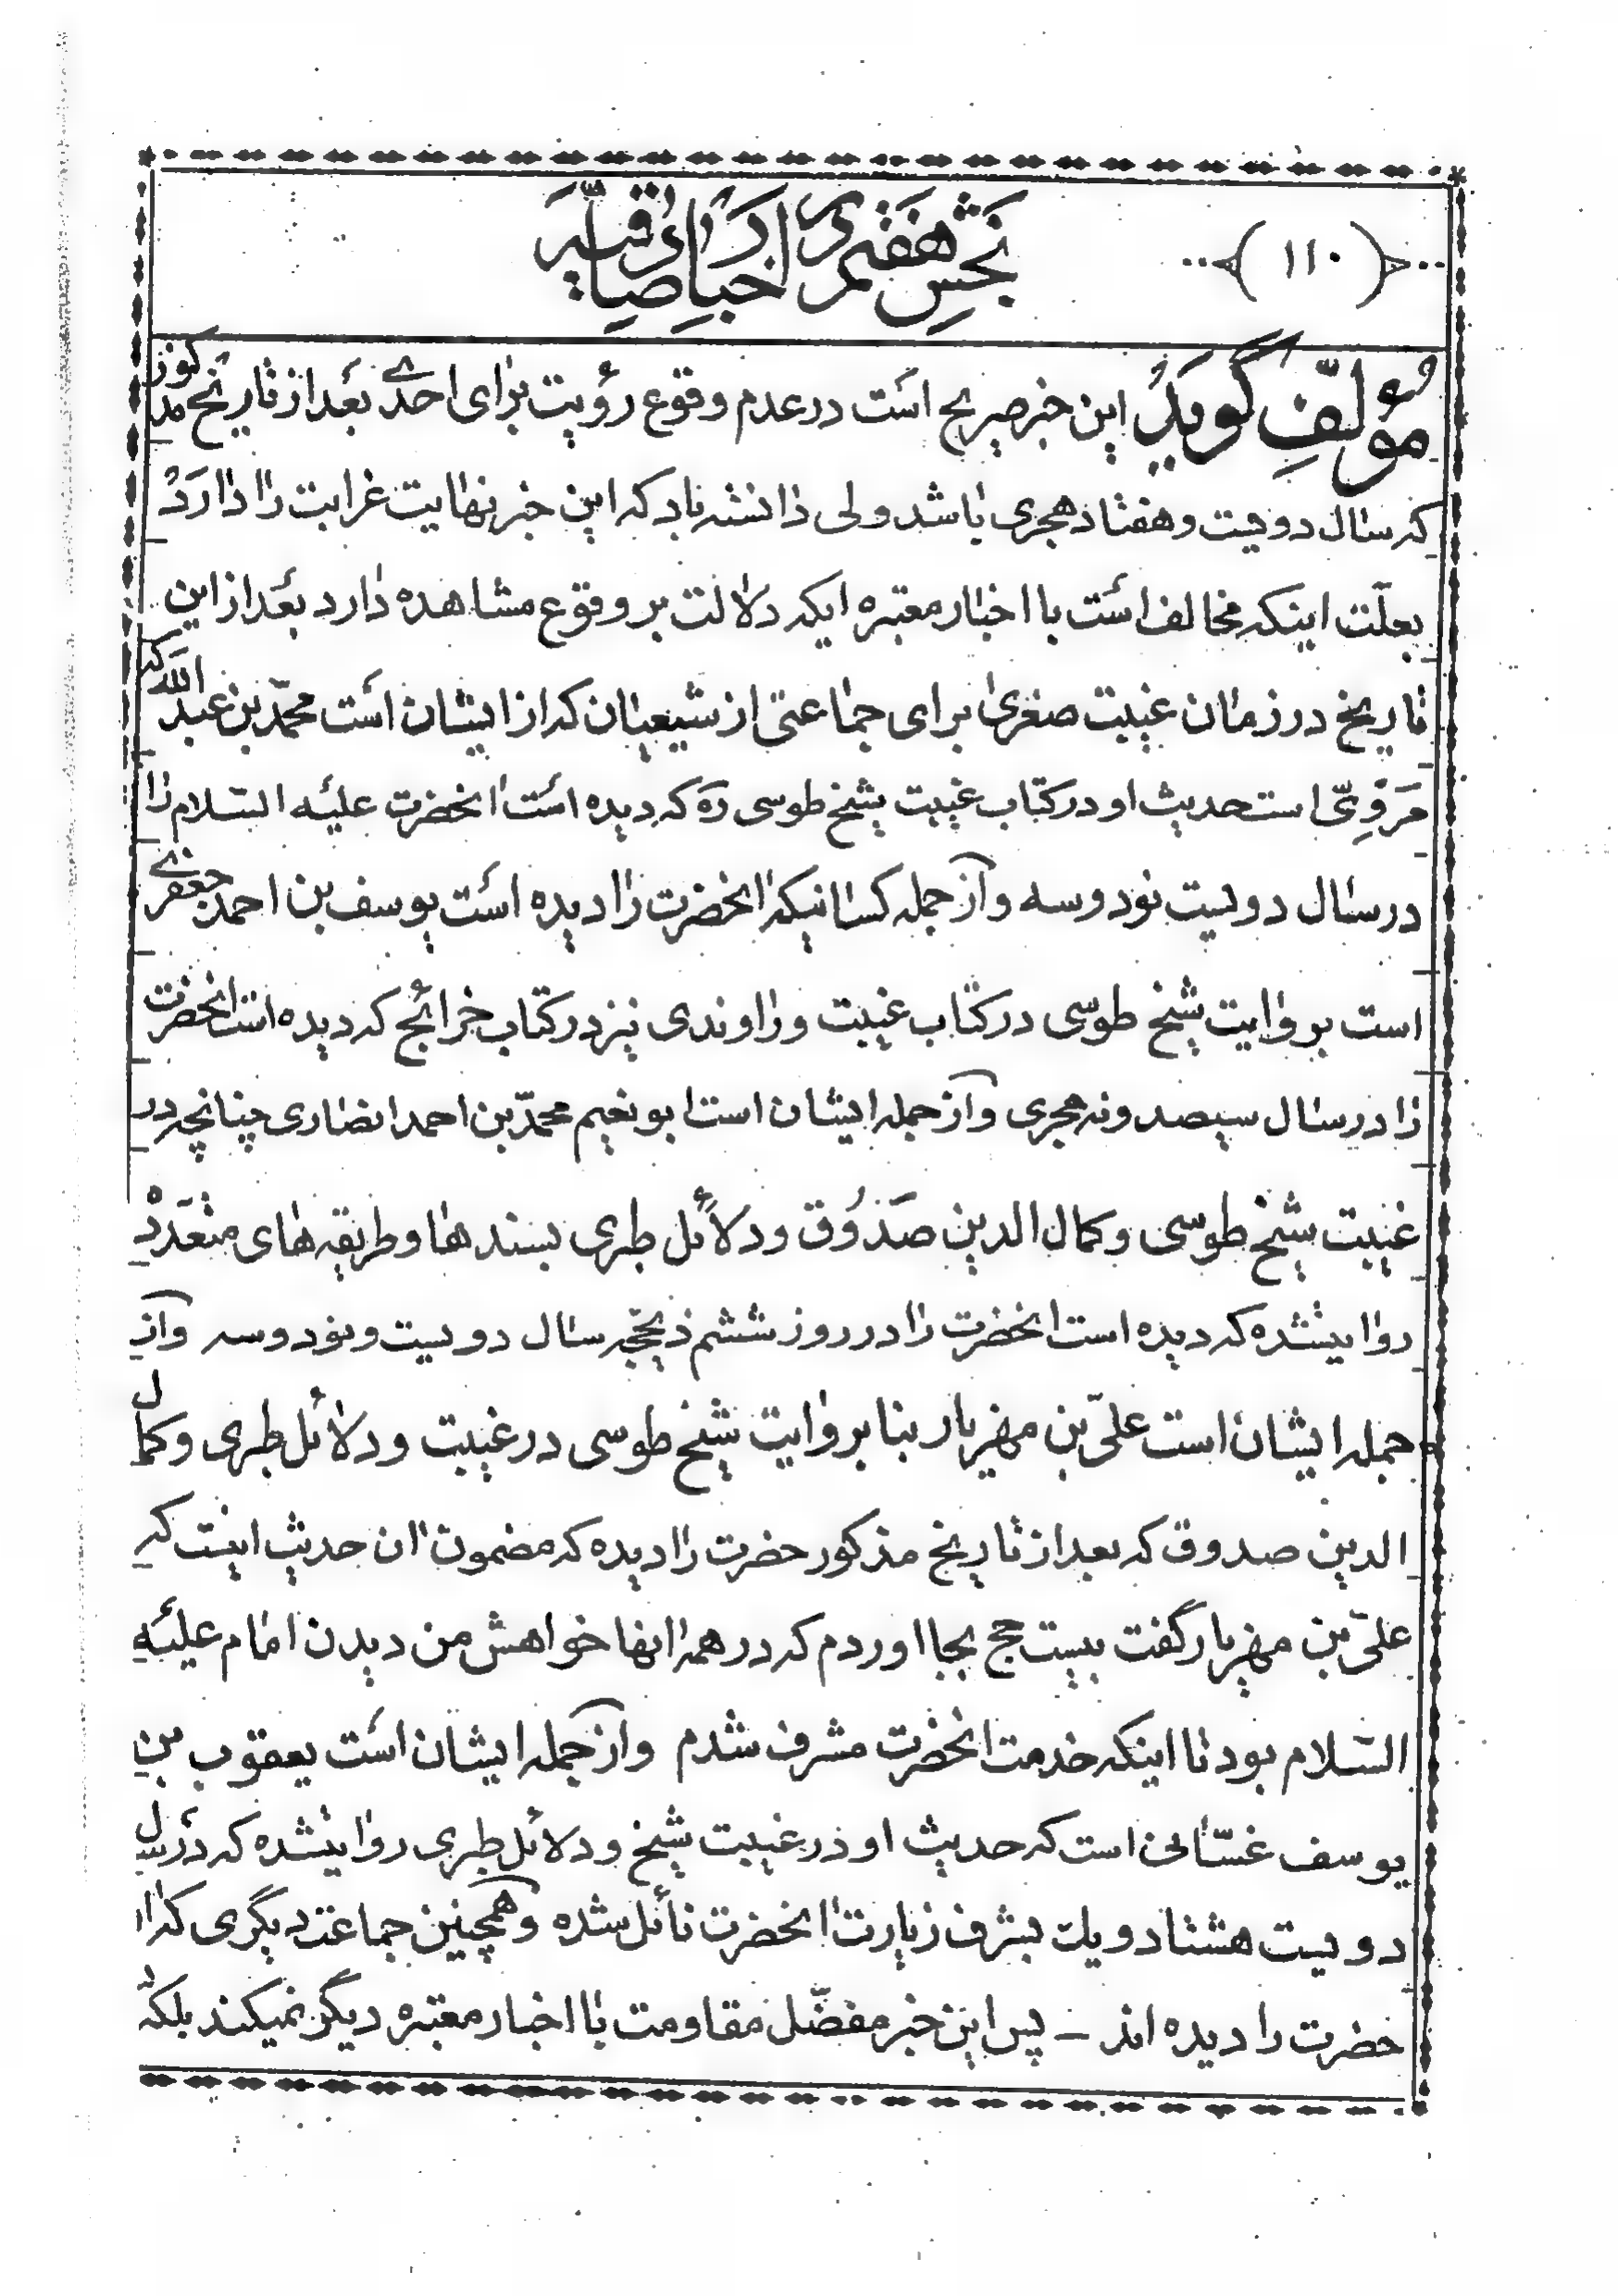 (۱۱۰)
بخش هفتمی در اخبار
مؤلّف گوید این خبر صریح است در عدم وقوع رؤیت برای احدی بعد از تاریخ مذکور
که سال دویست و هفتاد هجری باشد ولی دانسته باد که این خبر نهایت غرابت را دارد
بعلّت اینکه مخالف است با اخبار معتبره ایکه دلالت بر وقوع مشاهده دارد بعد از این
تاریخ در زمان غیبت صغری برای جماعتی از شیعیان که از ایشان است محمّد بن عبد الله که
مَرْوِیّ است حدیث او در کتاب غیبت شیخ طوسی ره که دیده است انحضرت علیه السّلام را
در سال دویست نود و سه و از جمله کسانیکه انحضرت را دیده است یوسف بن احمد جعفری
است بروایت شیخ طوسی در کتاب غیبت و راوندی نیز در کتاب خرائج که دیده است انحضرت
را در سال سیصد و نه هجری و از جمله ایشان است ابو نعیم محمّد بن احمد انصاری چنانچه در
غیبت شیخ طوسی و کمال الدین صَدُوق و دلائل طبری بسندها و طریقه های متعدّده
روایتشده که دیده است انحضرت را در روز ششم ذیحجّه سال دویست و نود و سه و از
جمله ایشان است علیّ بن مهزیار بنا بروایت شیخ طوسی در غیبت و دلائل طبری و کمال
الدین صدوق که بعد از تاریخ مذکور حضرت را دیده که مضمون ان حدیث اینست که
علیّ بن مهزیار گفت بیست حج بجا اوردم که در همه انها خواهش من دیدن امام علیه
السّلام بود تا اینکه خدمت انحضرت مشرف شدم و از جمله ایشان است یعقوب بن
یوسف غسّانی است که حدیث او در غیبت شیخ و دلائل طبری روایتشده که در سال
دویست هشتاد و یك بشرف زیارت انحضرت نائل شده و همچنین جماعت دیگری که ان
حضرت را دیده اند – پس این خبر مفضّل مقاومت با اخبار معتبره دیگر نمیکند بلکه